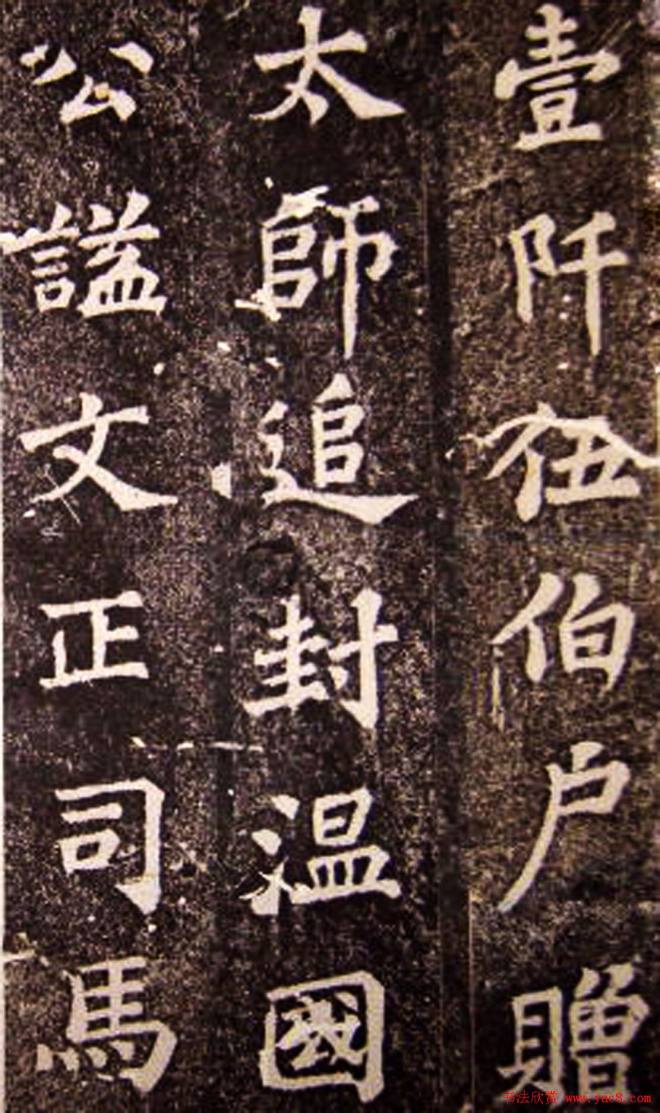 壹阡伍伯户贈
太師追封温國
公謚文正司馬
书法欣赏 www.yac8.com